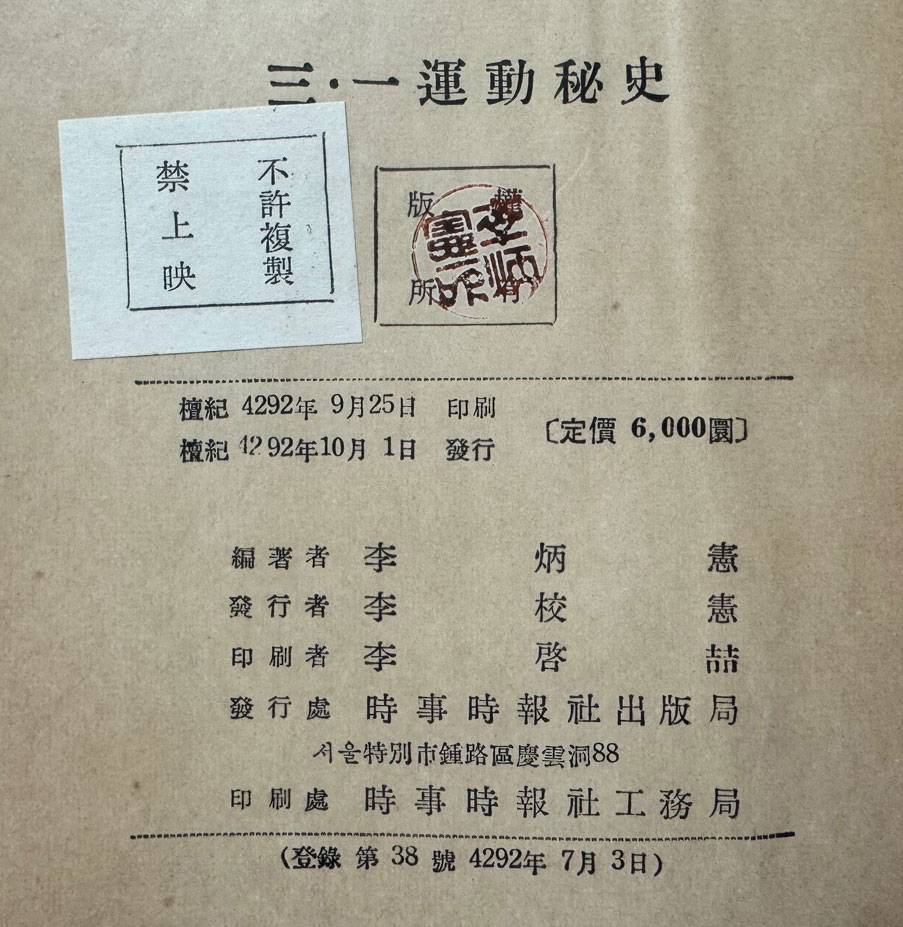 三·一運動秘史
不許複製
禁上映
版權
所有
檀紀 4292年 9月25日 印刷
檀紀 4292年10月 1日 發行
〔定價 6,000圜〕
編著者 李炳憲
發行者 李校憲
印刷者 李啓喆
發行處 時事時報社出版局
서울特別市鍾路區慶雲洞88
印刷處 時事時報社工務局
(登錄 第 38 號 4292年 7月 3日)